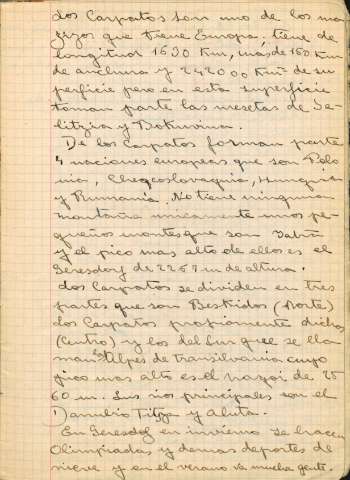 Los Carpatos son uno de los ma-
zizos que tiene Europa; tiene de
longitud 1630 Km, más de 160 Km
de anchura y 242000 Km² de su
perficie pero en esta superficie
toman parte las mesetas de
y Bokuvina.
De los Carpatos forman parte
4 naciones europeas que son Polo
nia, Checoslovaquia, Hungria
y Rumania. No tiene ninguna
montaña unicamente unos pe-
queños montes que son
y el pico mas alto de ellos es el
de 2267 m de altura.
Los Carpatos se dividen en tres
partes que son Beskidos (Norte)
Los Carpatos propiamente dichos
(Centro) y los del Sur que se lla
man Alpes de transilvania cuyo
pico mas alto es el de 25
60 m. Sus rios principales son el
Danubio Titza y Aluta.
En en invierno se hacen
Olimpiadas y demas deportes de
nieve y en el verano va mucha gente.